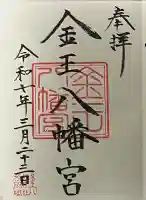 奉拝
金王八幡宮
令和七年三月二十二日
金王八幡宮